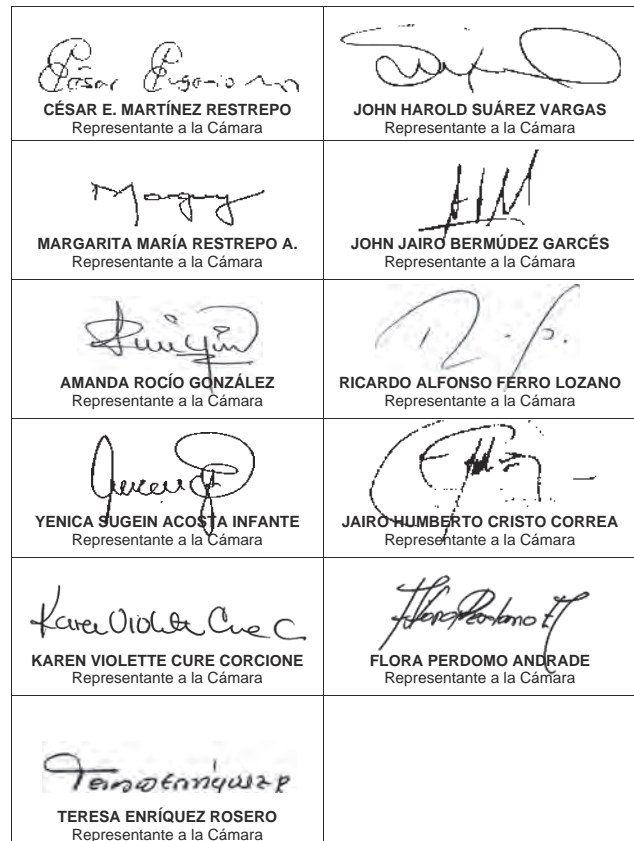 CÉSAR E. MARTÍNEZ RESTREPO
Representante a la Cámara
JOHN HAROLD SUÁREZ VARGAS
Representante a la Cámara
MARGARITA MARÍA RESTREPO A.
Representante a la Cámara
JOHN JAIRO BERMÚDEZ GARCÉS
Representante a la Cámara
AMANDA ROCÍO GONZÁLEZ
Representante a la Cámara
RICARDO ALFONSO FERRO LOZANO
Representante a la Cámara
YENICA SUGEIN ACOSTA INFANTE
Representante a la Cámara
JAIRO HUMBERTO CRISTO CORREA
Representante a la Cámara
Karen Violette Cure C
KAREN VIOLETTE CURE CORCIONE
Representante a la Cámara
FLORA PERDOMO ANDRADE
Representante a la Cámara
TERESA ENRÍQUEZ ROSERO
Representante a la Cámara